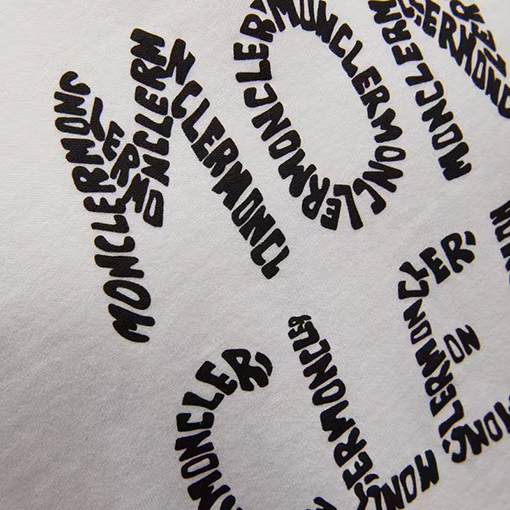 MONCLERMONC
LERMO
NCLERM
NCLERMONCL
MONCLERMONCLERMONCLERMONCLER
MONCLERM
CLERMON
MONCLER
MONCLER
LERMONCLER
MONCL
LERMONCLER
ON
MONC